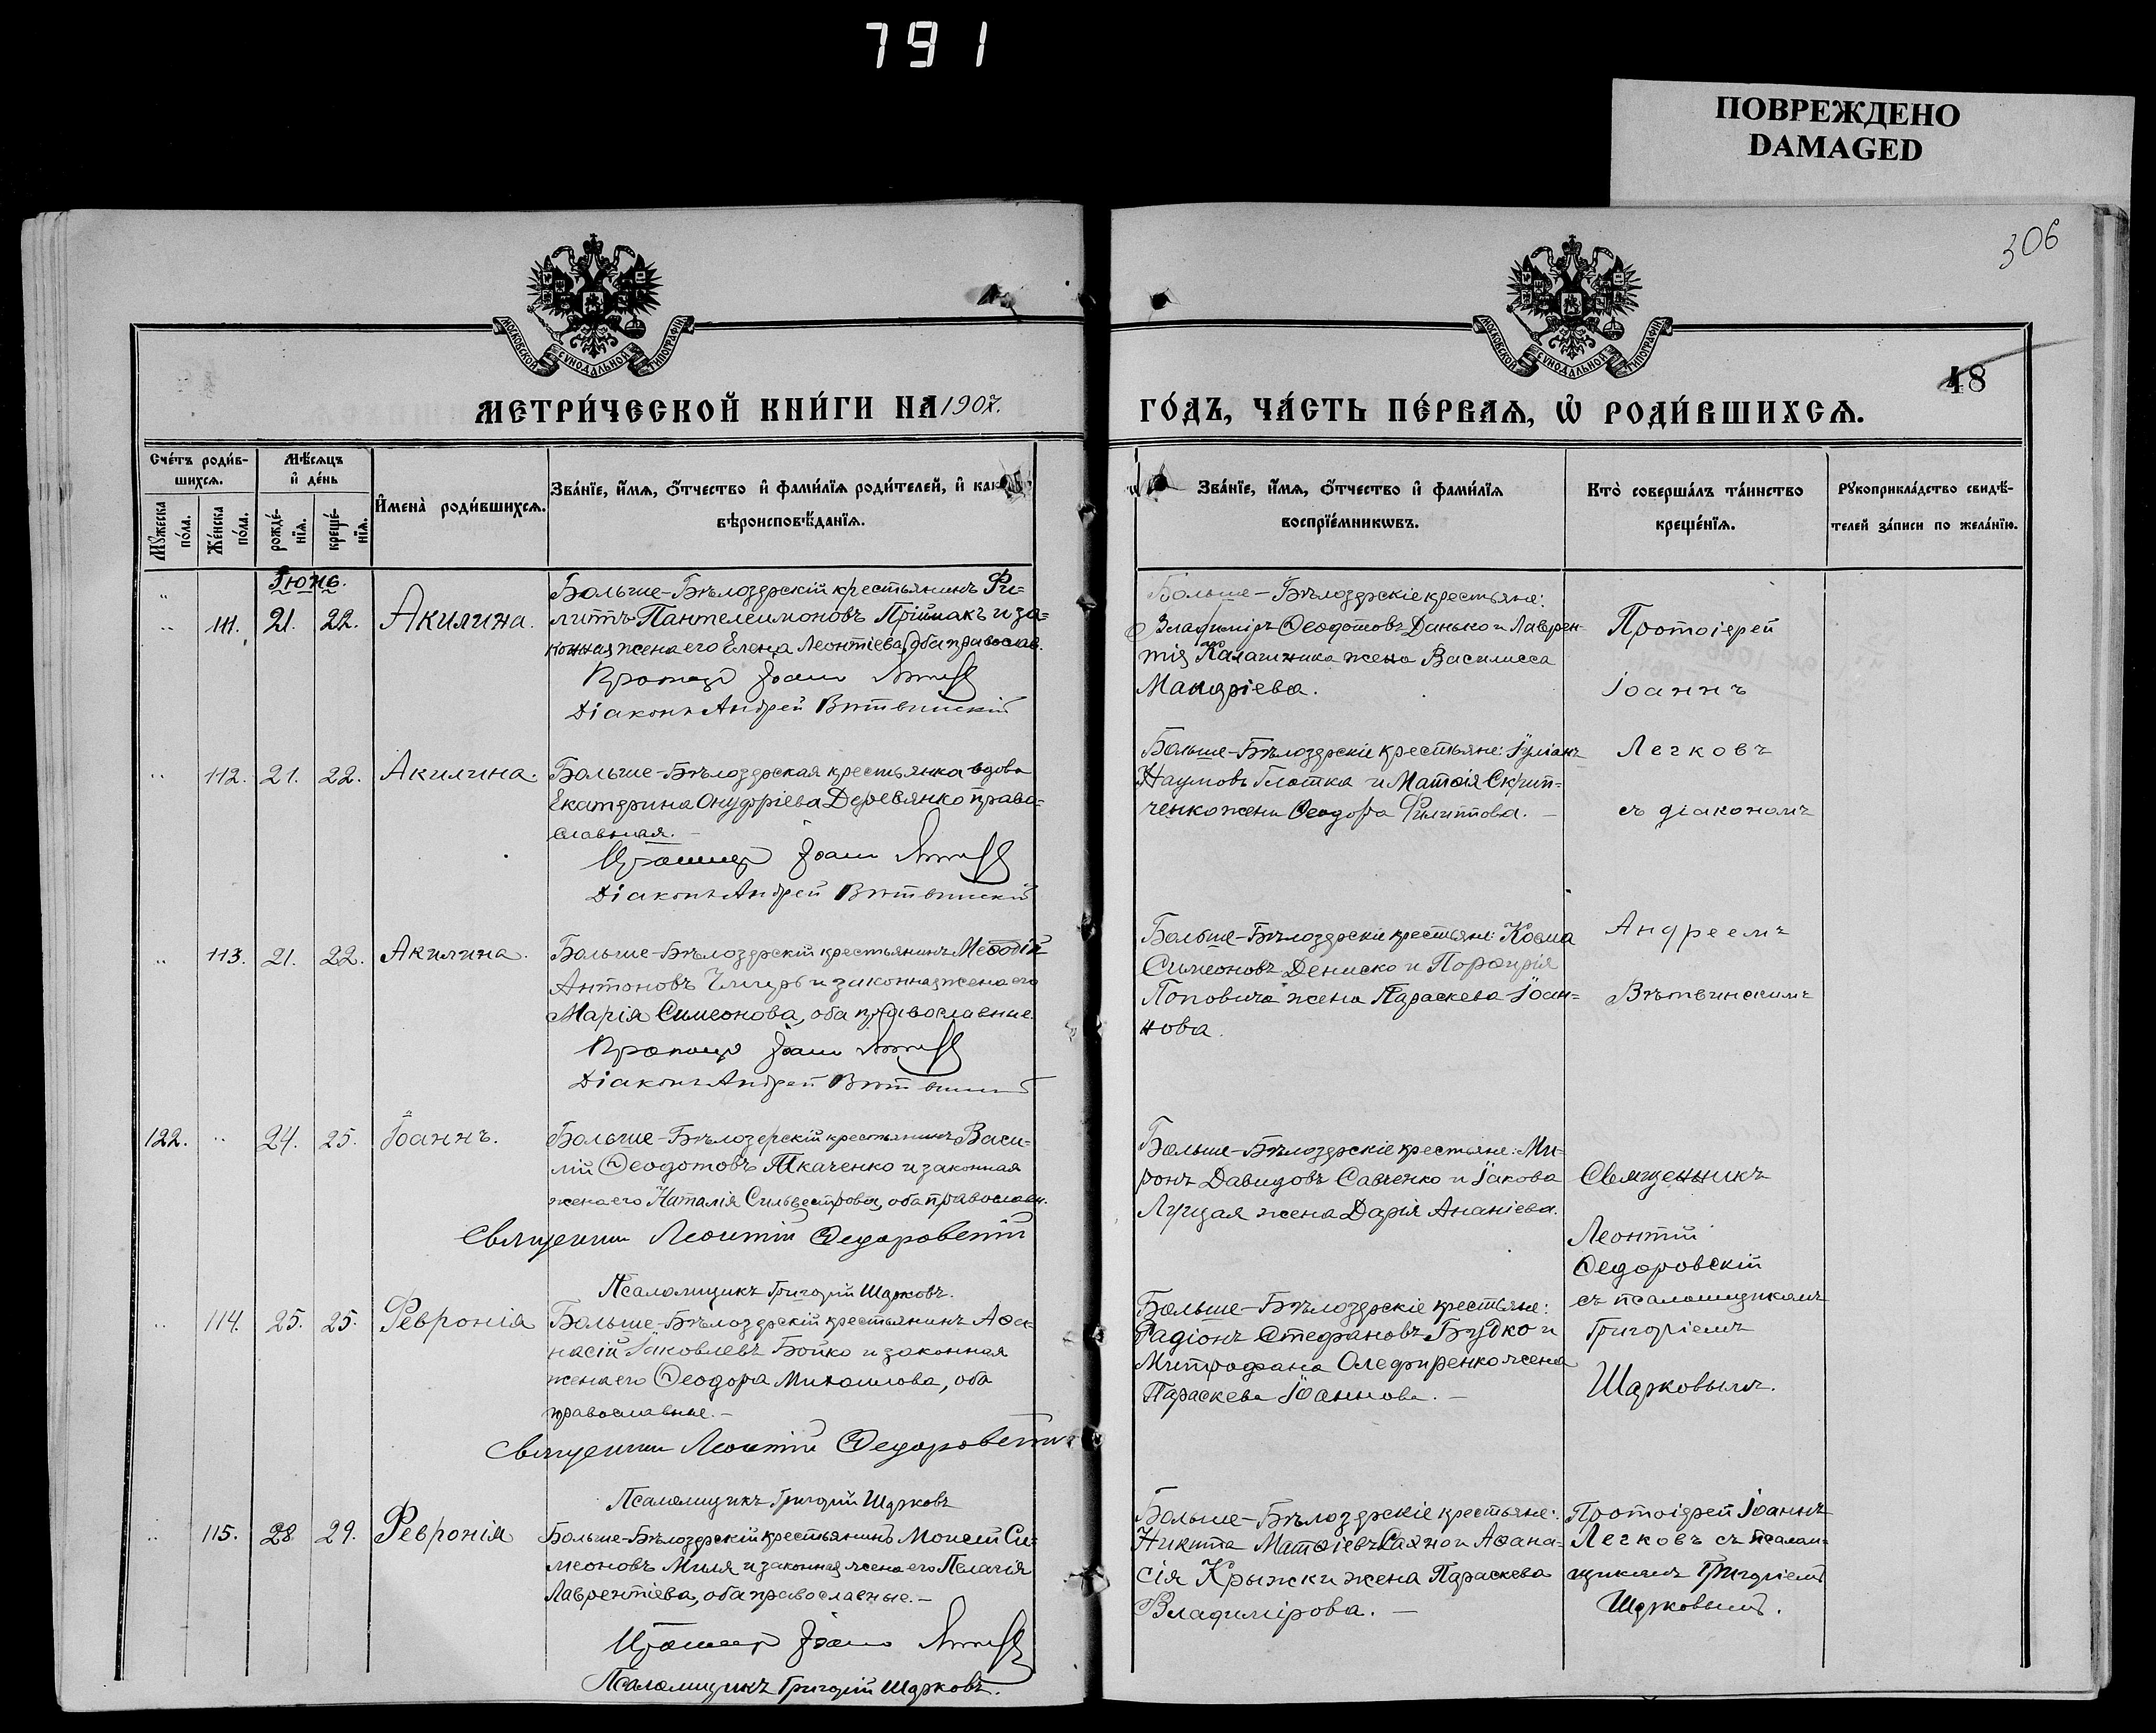 791
ПОВРЕЖДЕНО
DAMAGED
306
МОСКОВСКОЙ СѴНОДАЛЬНОЙ ТИПОГРАФІИ
МОСКОВСКОЙ СѴНОДАЛЬНОЙ ТИПОГРАФІИ
48
МЕТРИ́ЧЕСКОЙ КНИ́ГИ НА 1907.
ГО́ДЪ, ЧА́СТЬ ПЕ́РВАѦ, Ѡ҆ РОДИ́ВШИХСѦ.
Сче́тъ роди́в-
шихсѧ.
Мꙋжеска
по́ла.
Же́нска
по́ла.
Мѣ́сѧцъ
и҆ де́нь
рожде́-
нїѧ.
креще́-
нїѧ.
И҆мена̀ роди́вшихсѧ.
Зва́нїе, и҆́мѧ, ѻ҆́тчество и҆ фами́лїѧ роди́телей, и҆ как
вѣроисповѣ́данїѧ.
Зва́нїе, и҆́мѧ, ѻ҆́тчество и҆ фами́лїѧ
воспрїе́мникѡвъ.
Кто̀ соверша́лъ та́инство
креще́нїѧ.
Рꙋкоприкла́дство свидѣ́-
телей за́писи по жела́нїю.
Іюнь.
111. 21. 22. Акилина.
Больше-Бѣлозерскій крестьянинъ Фи-
липпъ Пантелеимоновъ Пріймакъ и за-
конная жена его Елена Леонтіева, оба православ.
Іоаннъ
Діаконъ Андрей Вѣтвинскій
Больше-Бѣлозерскіе крестьяне:
Владиміръ Ѳеодотовъ Данько и Лаврен-
тія Калашника жена Василисса
Макаріева.
Протоіерей
Іоаннъ
Легковъ
съ діакономъ
Андреемъ
Вѣтвинскимъ
112. 21. 22. Акилина.
Больше-Бѣлозерская крестьянка вдова
Екатерина Онуфріева Деревянко право-
славная.
Іоаннъ
Діаконъ Андрей Вѣтвинскій
Больше-Бѣлозерскіе крестьяне: Іуліанъ
Наумовъ Глотка и Матѳія Скрип-
ченко жена Ѳеодора Филиппова.
113. 21. 22. Акилина.
Больше-Бѣлозерскій крестьянинъ Меѳодій
Антоновъ и законная жена его
Марія Симеонова, оба православные.
Іоаннъ
Діаконъ Андрей Вѣтвинскій
Больше-Бѣлозерскіе крестьяне: Косма
Симеоновъ Дениско и Порфирія
Поповича жена Параскева Іоан-
нова.
122. 24. 25. Іоаннъ.
Больше-Бѣлозерскій крестьянинъ Васи-
лій Ѳеодотовъ Ткаченко и законная
жена его Наталія Сильвестрова, оба православн.
Священникъ Леонтій Ѳедоровскій
Псаломщикъ Григорій Шарковъ.
Больше-Бѣлозерскіе крестьяне: Ми-
ронъ Давидовъ Савченко и Іакова
Луцая жена Дарія Ананіева.
Священникъ
Леонтій
Ѳедоровскій
съ псаломщикомъ
Григоріемъ
Шарковымъ.
114. 25. 25. Февронія
Больше-Бѣлозерскій крестьянинъ Аѳа-
насій Іаковлевъ Бойко и законная
жена его Ѳеодора Михаилова, оба
православные.
Священникъ Леонтій Ѳедоровскій
Псаломщикъ Григорій Шарковъ
Больше-Бѣлозерскіе крестьяне:
Радіонъ Стефановъ Будко и
Митрофана Олефиренко жена
Параскева Іоаннова.
115. 28 29. Февронія
Больше-Бѣлозерскій крестьянинъ Моисей Си-
меоновъ Миля и законная жена его Пелагія
Лаврентіева, оба православные.
Іоаннъ
Псаломщикъ Григорій Шарковъ.
Больше-Бѣлозерскіе крестьяне:
Никита Матѳіевъ и Аѳана-
сія Крыжки жена Параскева
Владимірова.
Протоіерей Іоаннъ
Легковъ съ псалом-
щикомъ Григоріемъ
Шарковымъ.